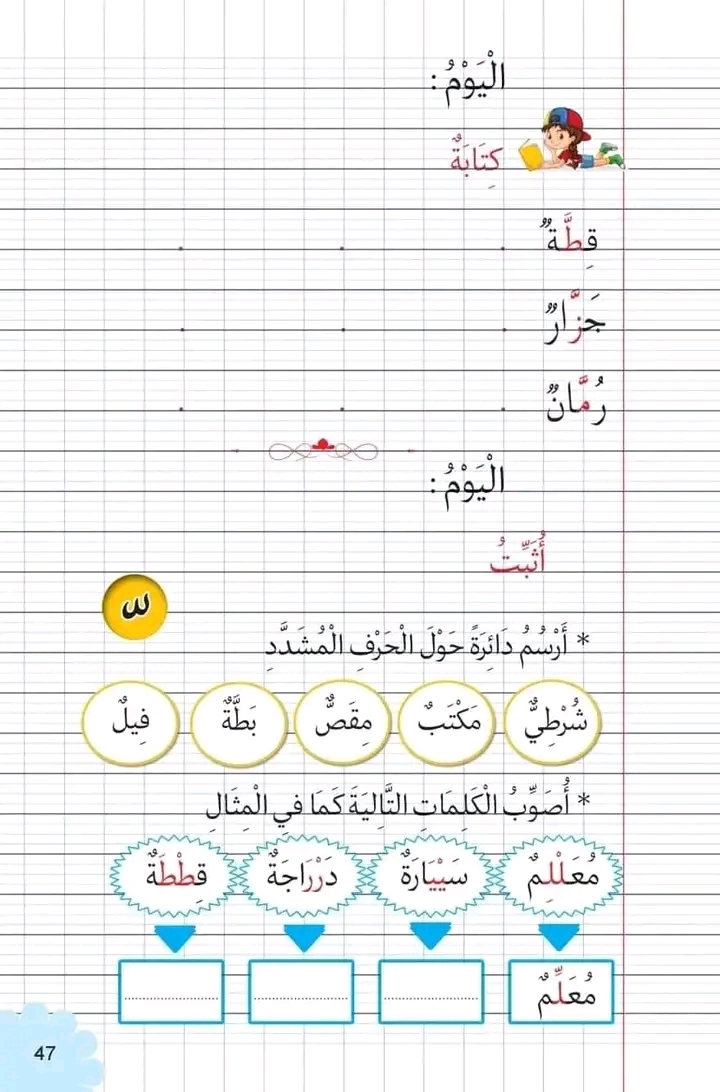 الْيَوْمُ :
كِتَابَةٌ
قِطَّةٌ
جَزَّارٌ
رُمَّانٌ
الْيَوْمُ :
أُثَبِّتُ
* أَرْسُمُ دَائِرَةً حَوْلَ الْحَرْفِ الْمُشَدَّدِ
شُرْطِيٌّ مَكْتَبٌ مِقَصٌّ بَطَّةٌ فِيلٌ
* أُصَوِّبُ الْكَلِمَاتِ التَّالِيَةَ كَمَا فِي الْمِثَالِ
مُعَلْلِمٌ سَيْيَارَةٌ دَرْرَاجَةٌ قِطْطَةٌ
مُعَلِّمٌ
47